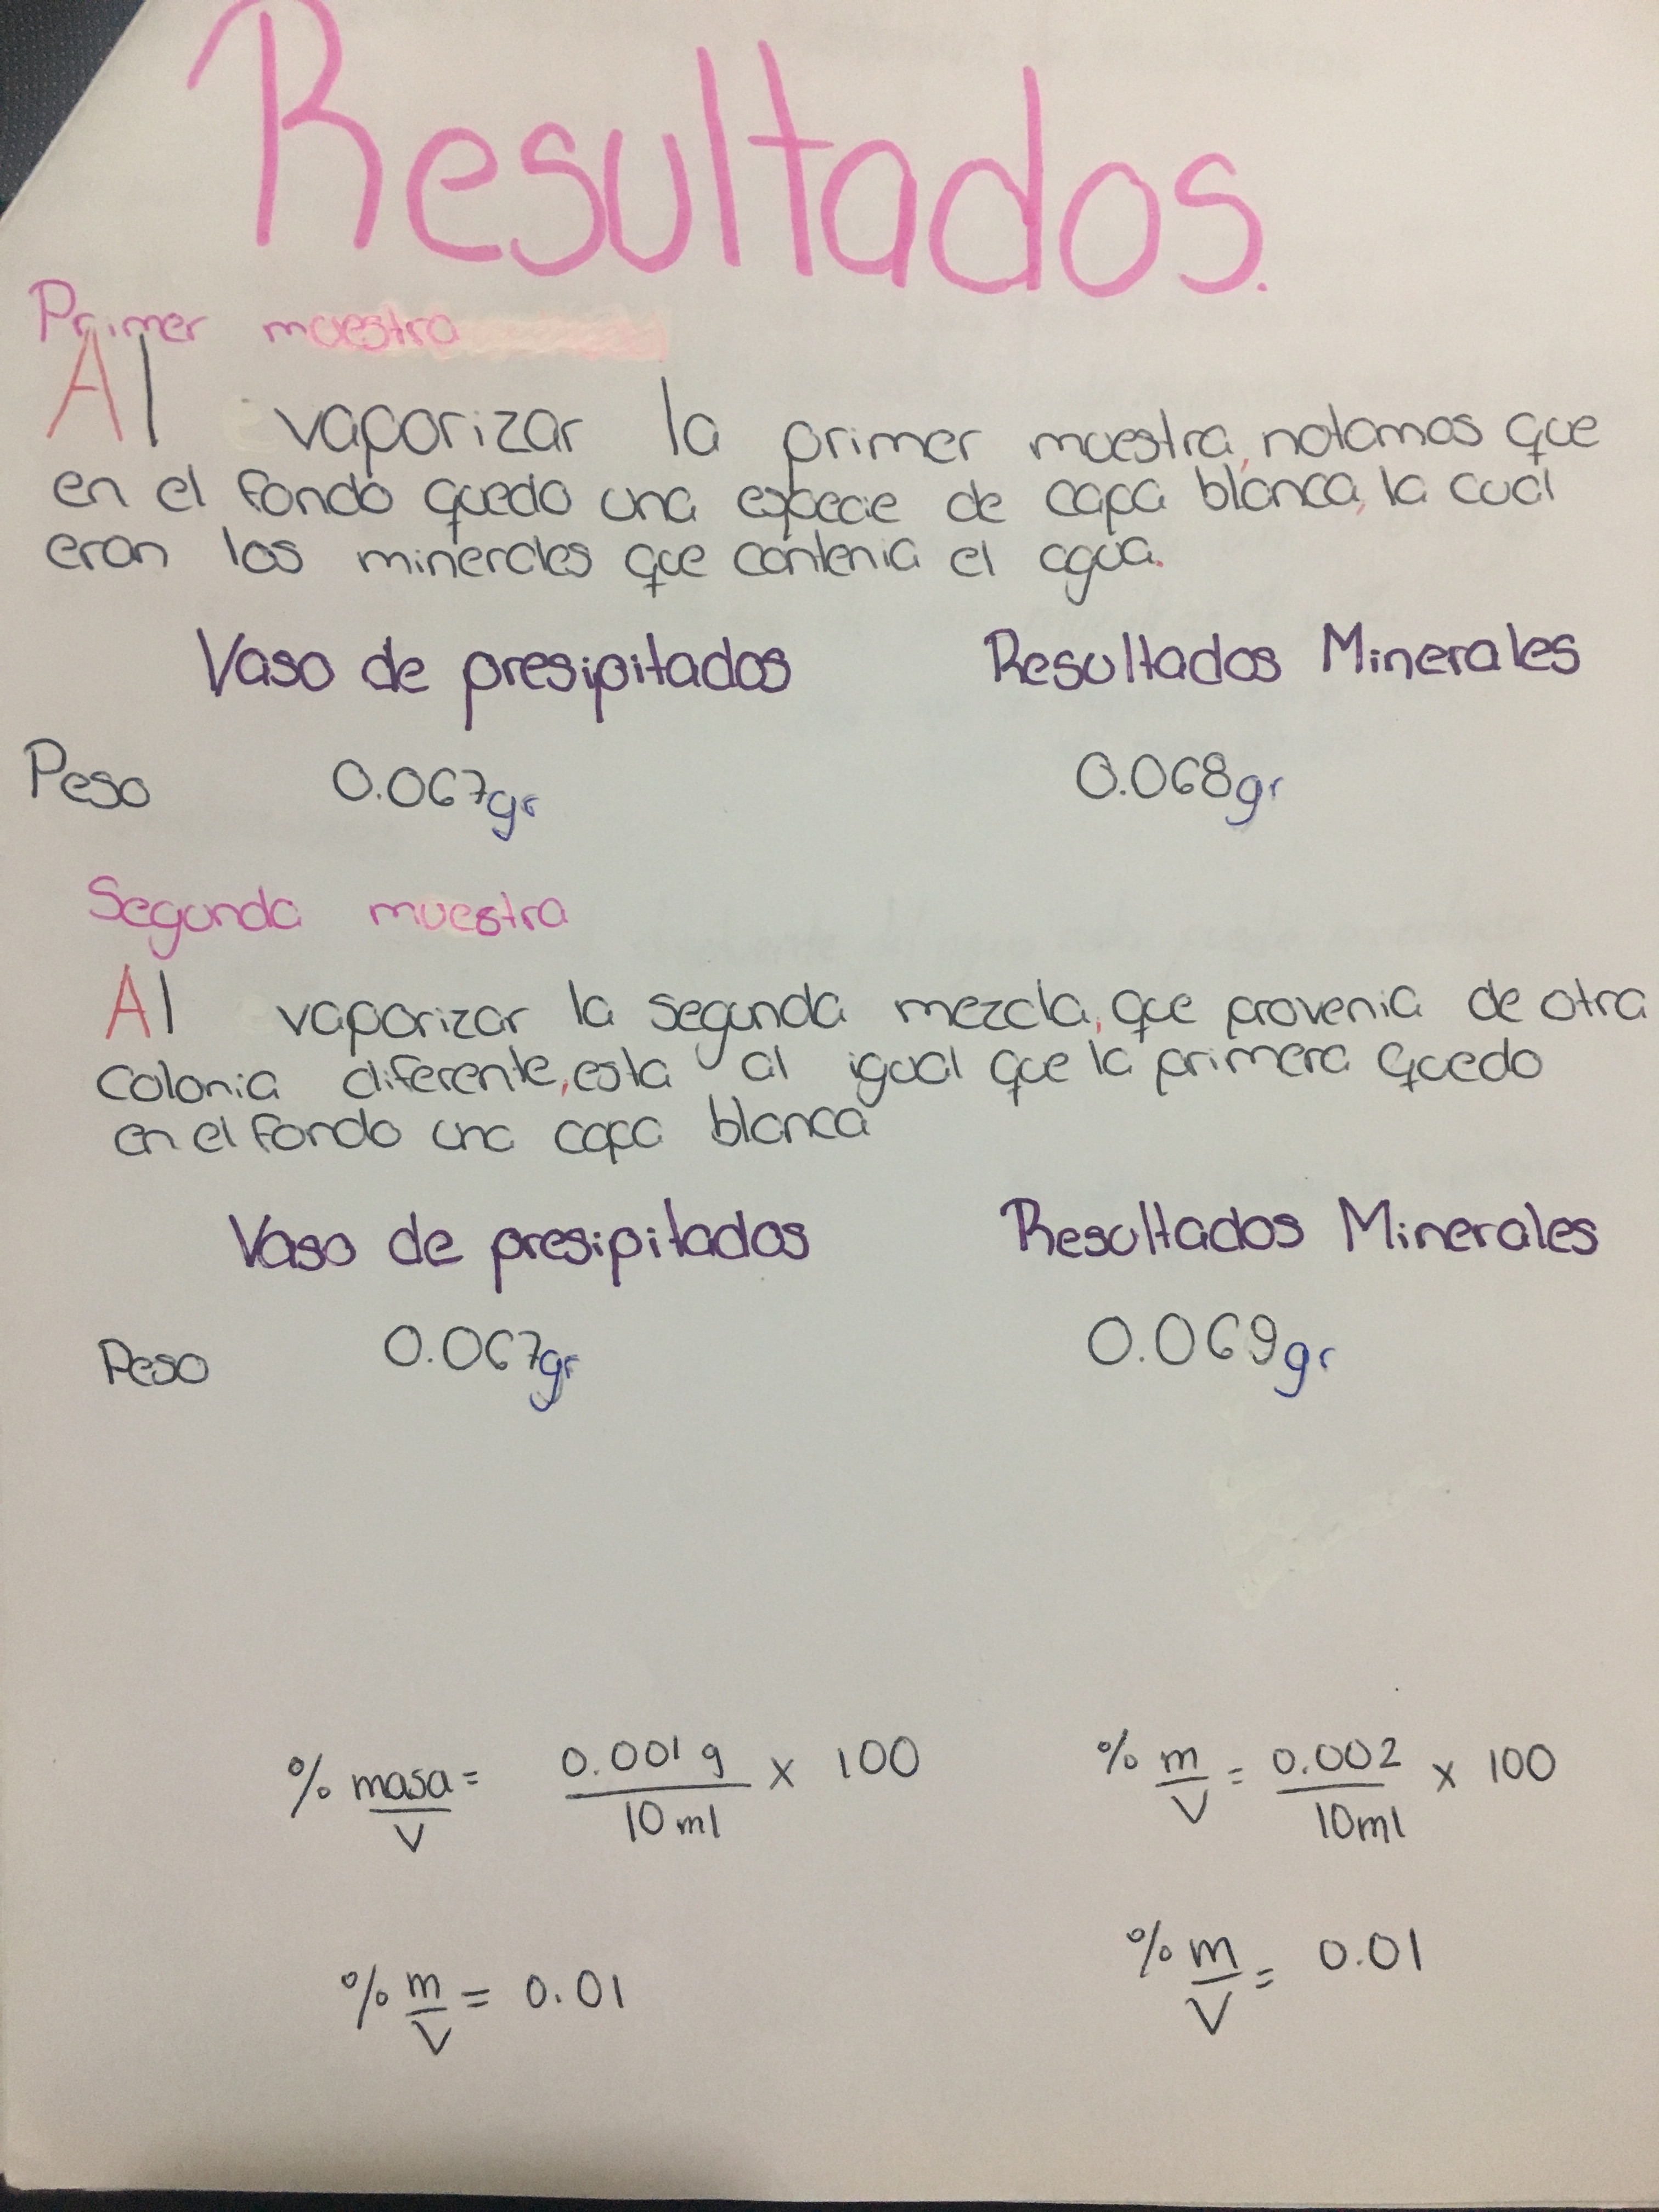 Resultados.
Primer muestra
Al vaporizar la primer muestra, notamos que
en el fondo quedo una especie de capa blanca, la cual
eran los minerales que contenia el agua.
Vaso de presipitados Resultados Minerales
Peso 0.067gr 0.068gr
Segunda muestra
Al vaporizar la segunda mezcla, que provenia de otra
colonia diferente, esta al igual que la primera quedo
en el fondo una capa blanca
Vaso de presipitados Resultados Minerales
Peso 0.067gr 0.069gr
% masa/V = 0.001g/10ml x 100 % m/V = 0.002/10ml x 100
% m/V = 0.01 % m/V = 0.01